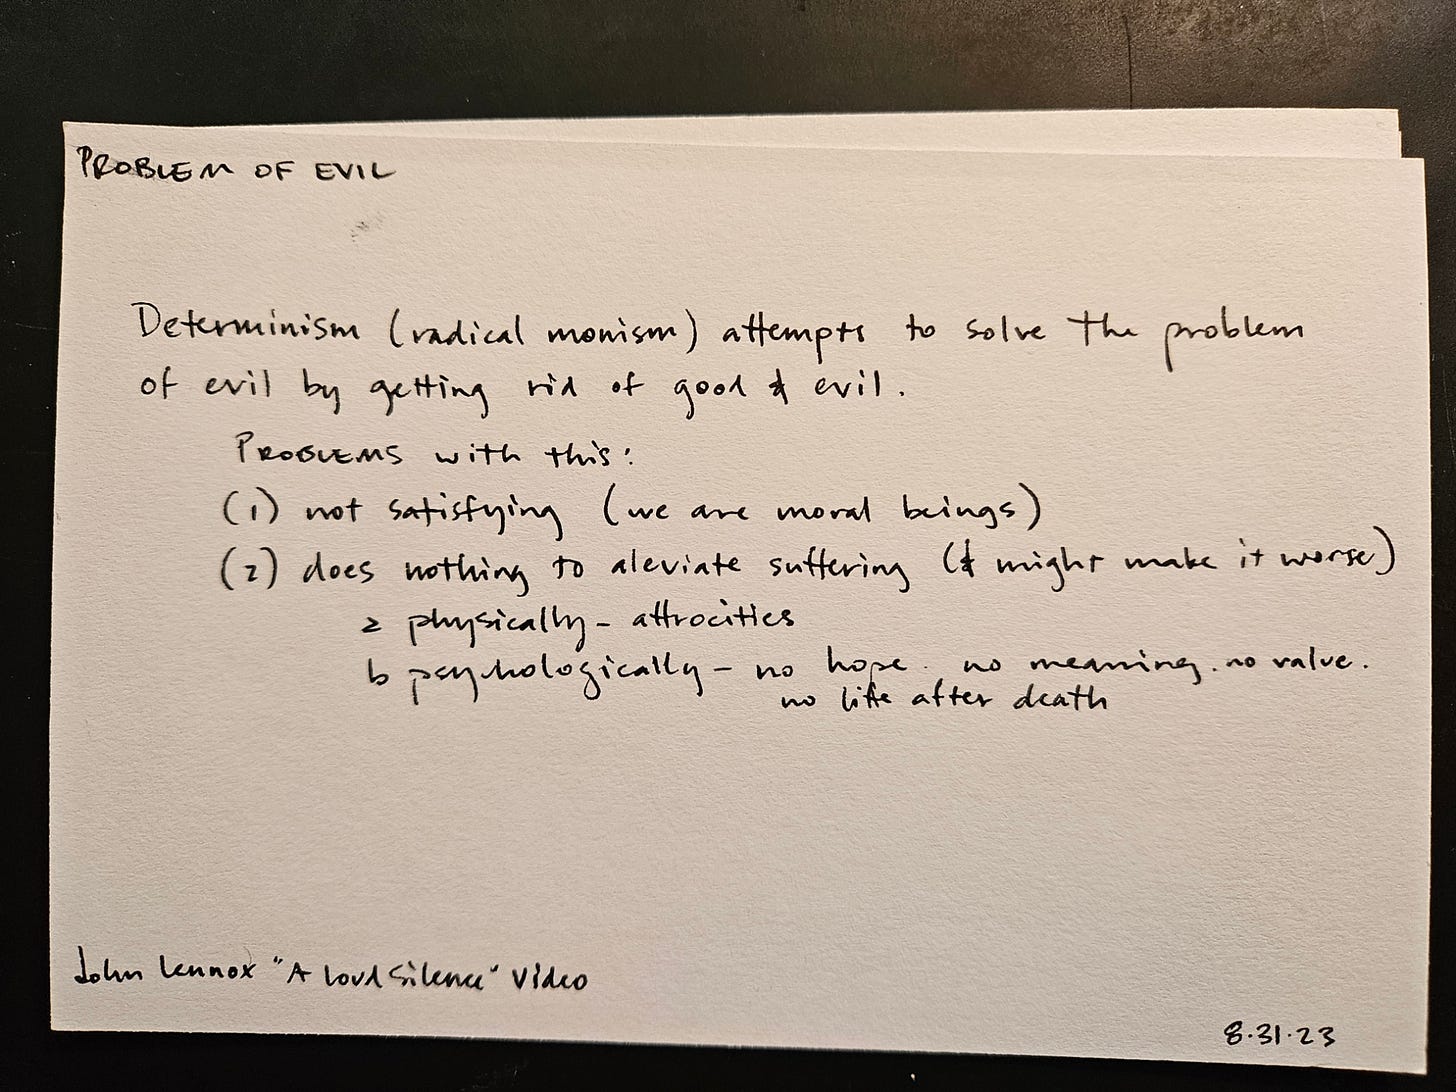 PROBLEM OF EVIL
Determinism (radical monism) attempts to solve the problem
of evil by getting rid of good & evil.
PROBLEMS with this:
(1) not satisfying (we are moral beings)
(2) does nothing to aleviate suffering (& might make it worse)
a physically - attrocities
b psychologically - no hope. no meaning. no value.
no life after death
John Lennox "A Loud Silence" Video
8.31.23